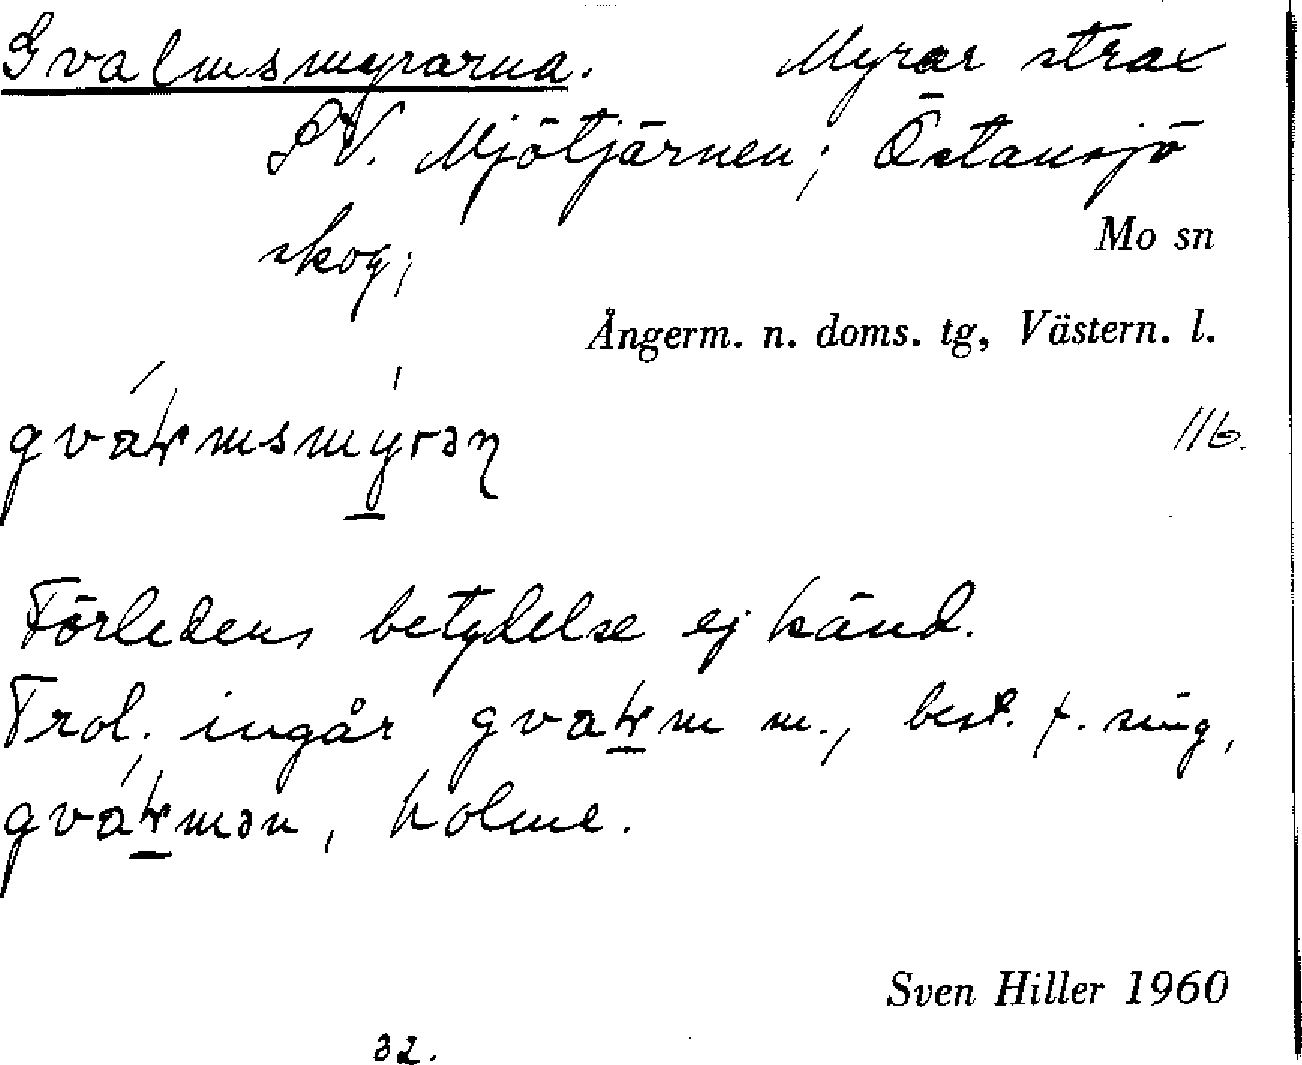 Gvalmsmyrarna. Myrar strax
SV. Mjötjärnen; Östansjö
skog;
Mo sn
Ångerm. n. doms. tg, Västern. l.
116.
Förledens betydelse ej känd.
Trol. ingår best. f. sing,
holme.
Sven Hiller 1960
32.